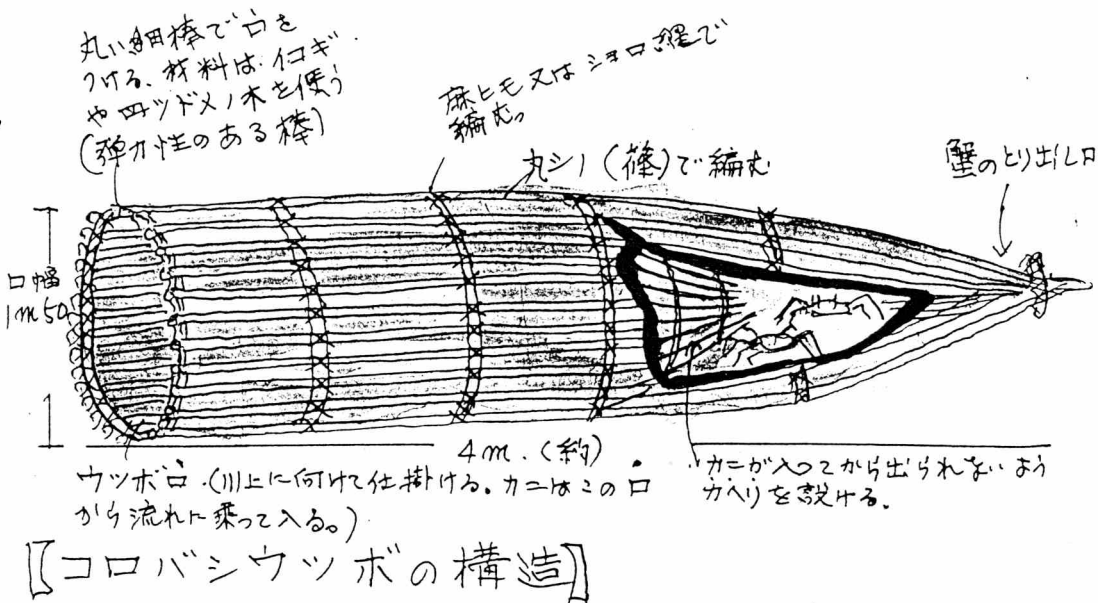 丸い細棒で口を
つける。材料は、イコギ
や四ツドメノ木を使う
(弾力性のある棒)
麻ヒモ又はシュロ縄で
編む。
丸シノ(篠)で編む
蟹のとり出し口
口幅
1m50
4m.(約)
ウツボ口.(川上に向けて仕掛ける。カニはこの口
から流れに乗って入る。)
カニが入ってから出られないよう
カヘリを設ける。
〖コロバシウツボの構造〗